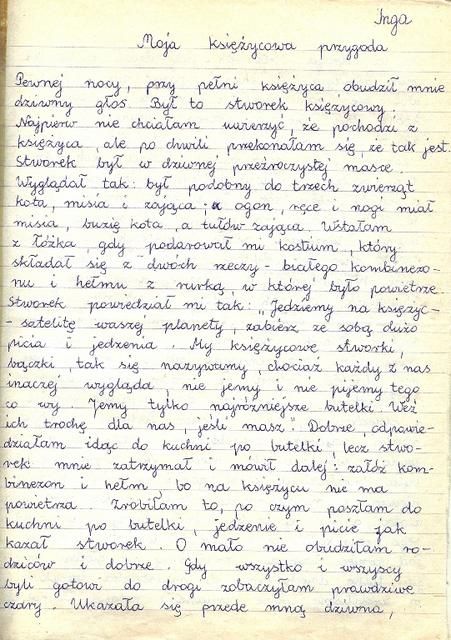 Inga
Moja księżycowa przygoda
Pewnej nocy, przy pełni księżyca obudził mnie
dziwny głos. Był to stworek księżycowy.
Najpierw nie chciałam uwierzyć, że pochodzi z
księżyca, ale po chwili przekonałam się, że tak jest.
Stworek był w dziwnej przeźroczystej masce.
Wyglądał tak: był podobny do trzech zwierząt
kota, misia i zająca; a ogon, ręce i nogi miał
misia, buzię kota, a tułów zająca. Wstałam
z łóżka, gdy podarował mi kostium, który
składał się z dwóch rzeczy - białego kombinezo-
nu i hełmu z rurką, w której było powietrze.
Stworek powiedział mi tak: "Jedziemy na księżyc-
- satelitę waszej planety, zabierz ze sobą dużo
picia i jedzenia. My księżycowe stworki,
bączki, tak się nazywamy, chociaż każdy z nas
inaczej wygląda, nie jemy i nie pijemy tego
co wy. Jemy tylko najróżniejsze butelki. Weź
ich trochę dla nas, jeśli masz. Dobrze, odpowie-
działam idąc do kuchni po butelki, lecz stwo-
rek mnie zatrzymał i mówił dalej: załóż kom-
binezon i hełm, bo na księżycu nie ma
powietrza. Zrobiłam to, po czym poszłam do
kuchni po butelki, jedzenie i picie jak
kazał stworek. O mało nie obudziłam ro-
dziców i dobrze. Gdy wszystko i wszyscy
byli gotowi do drogi zobaczyłam prawdziwe
czary. Ukazała się przede mną dziwna,